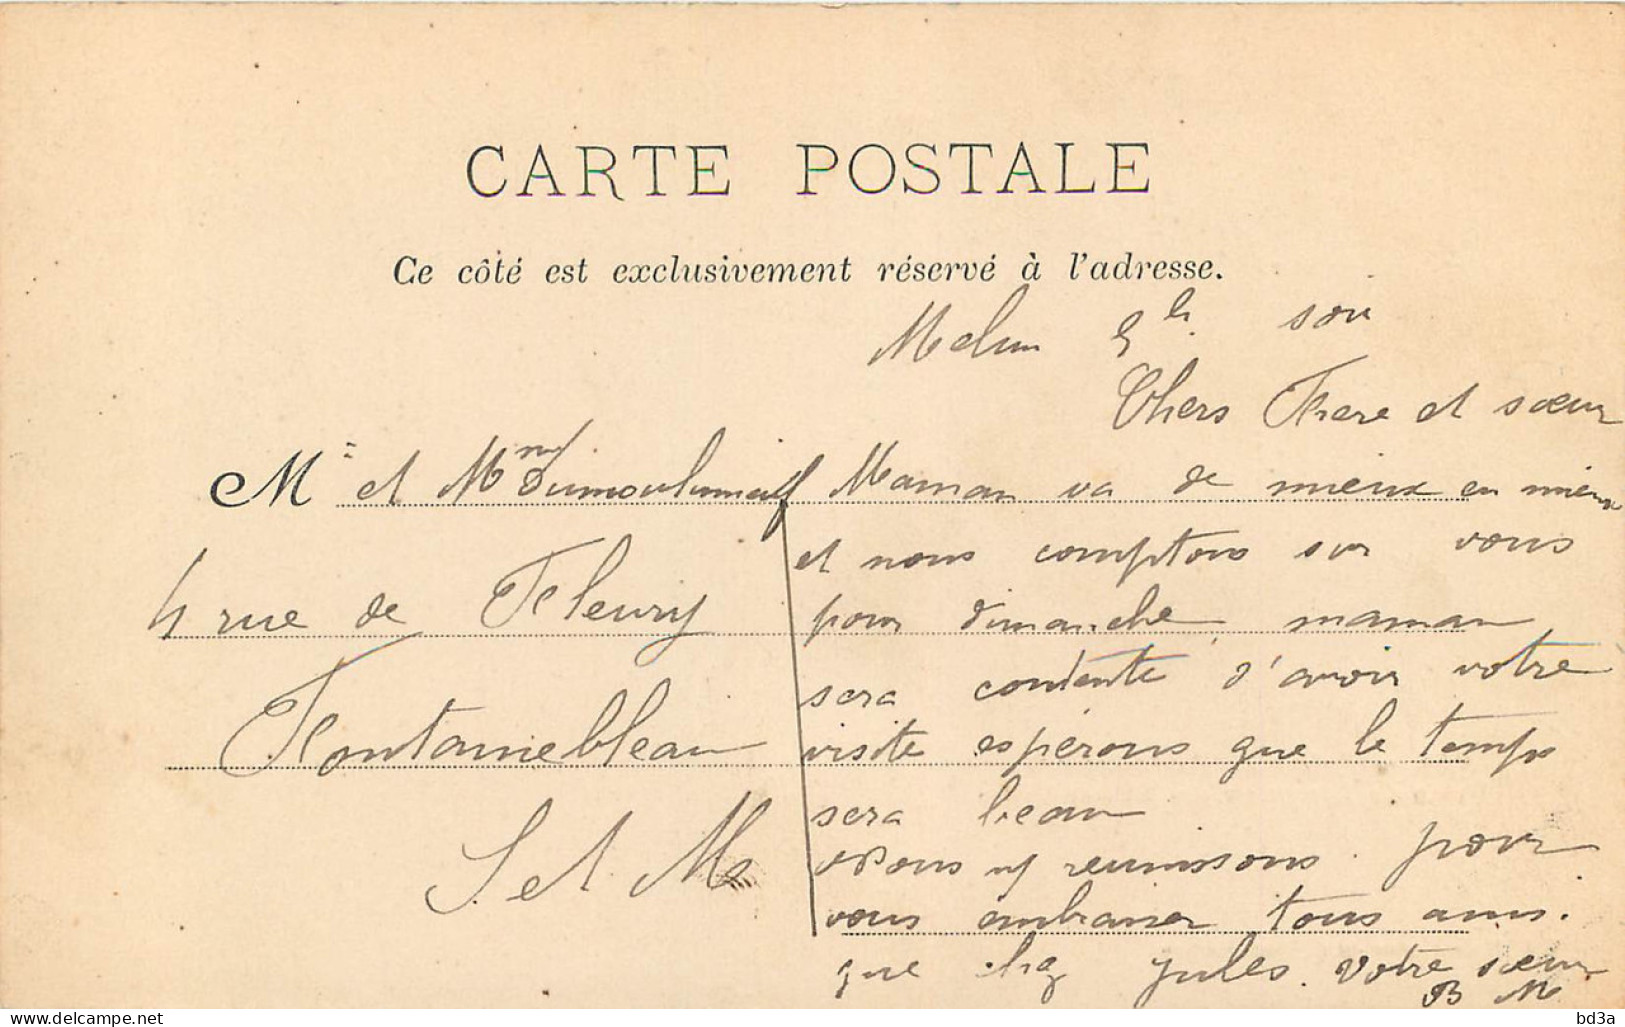 CARTE POSTALE
Ce côté est exclusivement réservé à l'adresse.
Melun 5h. soir
Chers Frere et sœur
M et Mme
4 rue de Fleury
Fontainebleau
S. et M.
Maman va de mieux en mieux
et nous comptons sur vous
pour dimanche maman
sera contente d'avoir votre
visite esperons que le temps
sera beau
Nous reunissons pour
vous embrasser tous ainsi.
que chez Jules. Votre sœur
B M
delcampe.net
bd3a